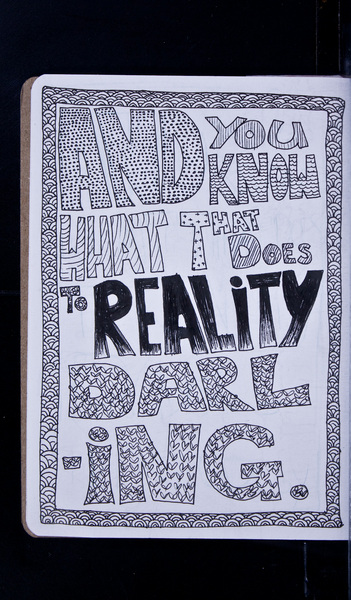 AND YOU
KNOW
WHAT THAT
DOES
To REALiTY
DARL
-iNG.